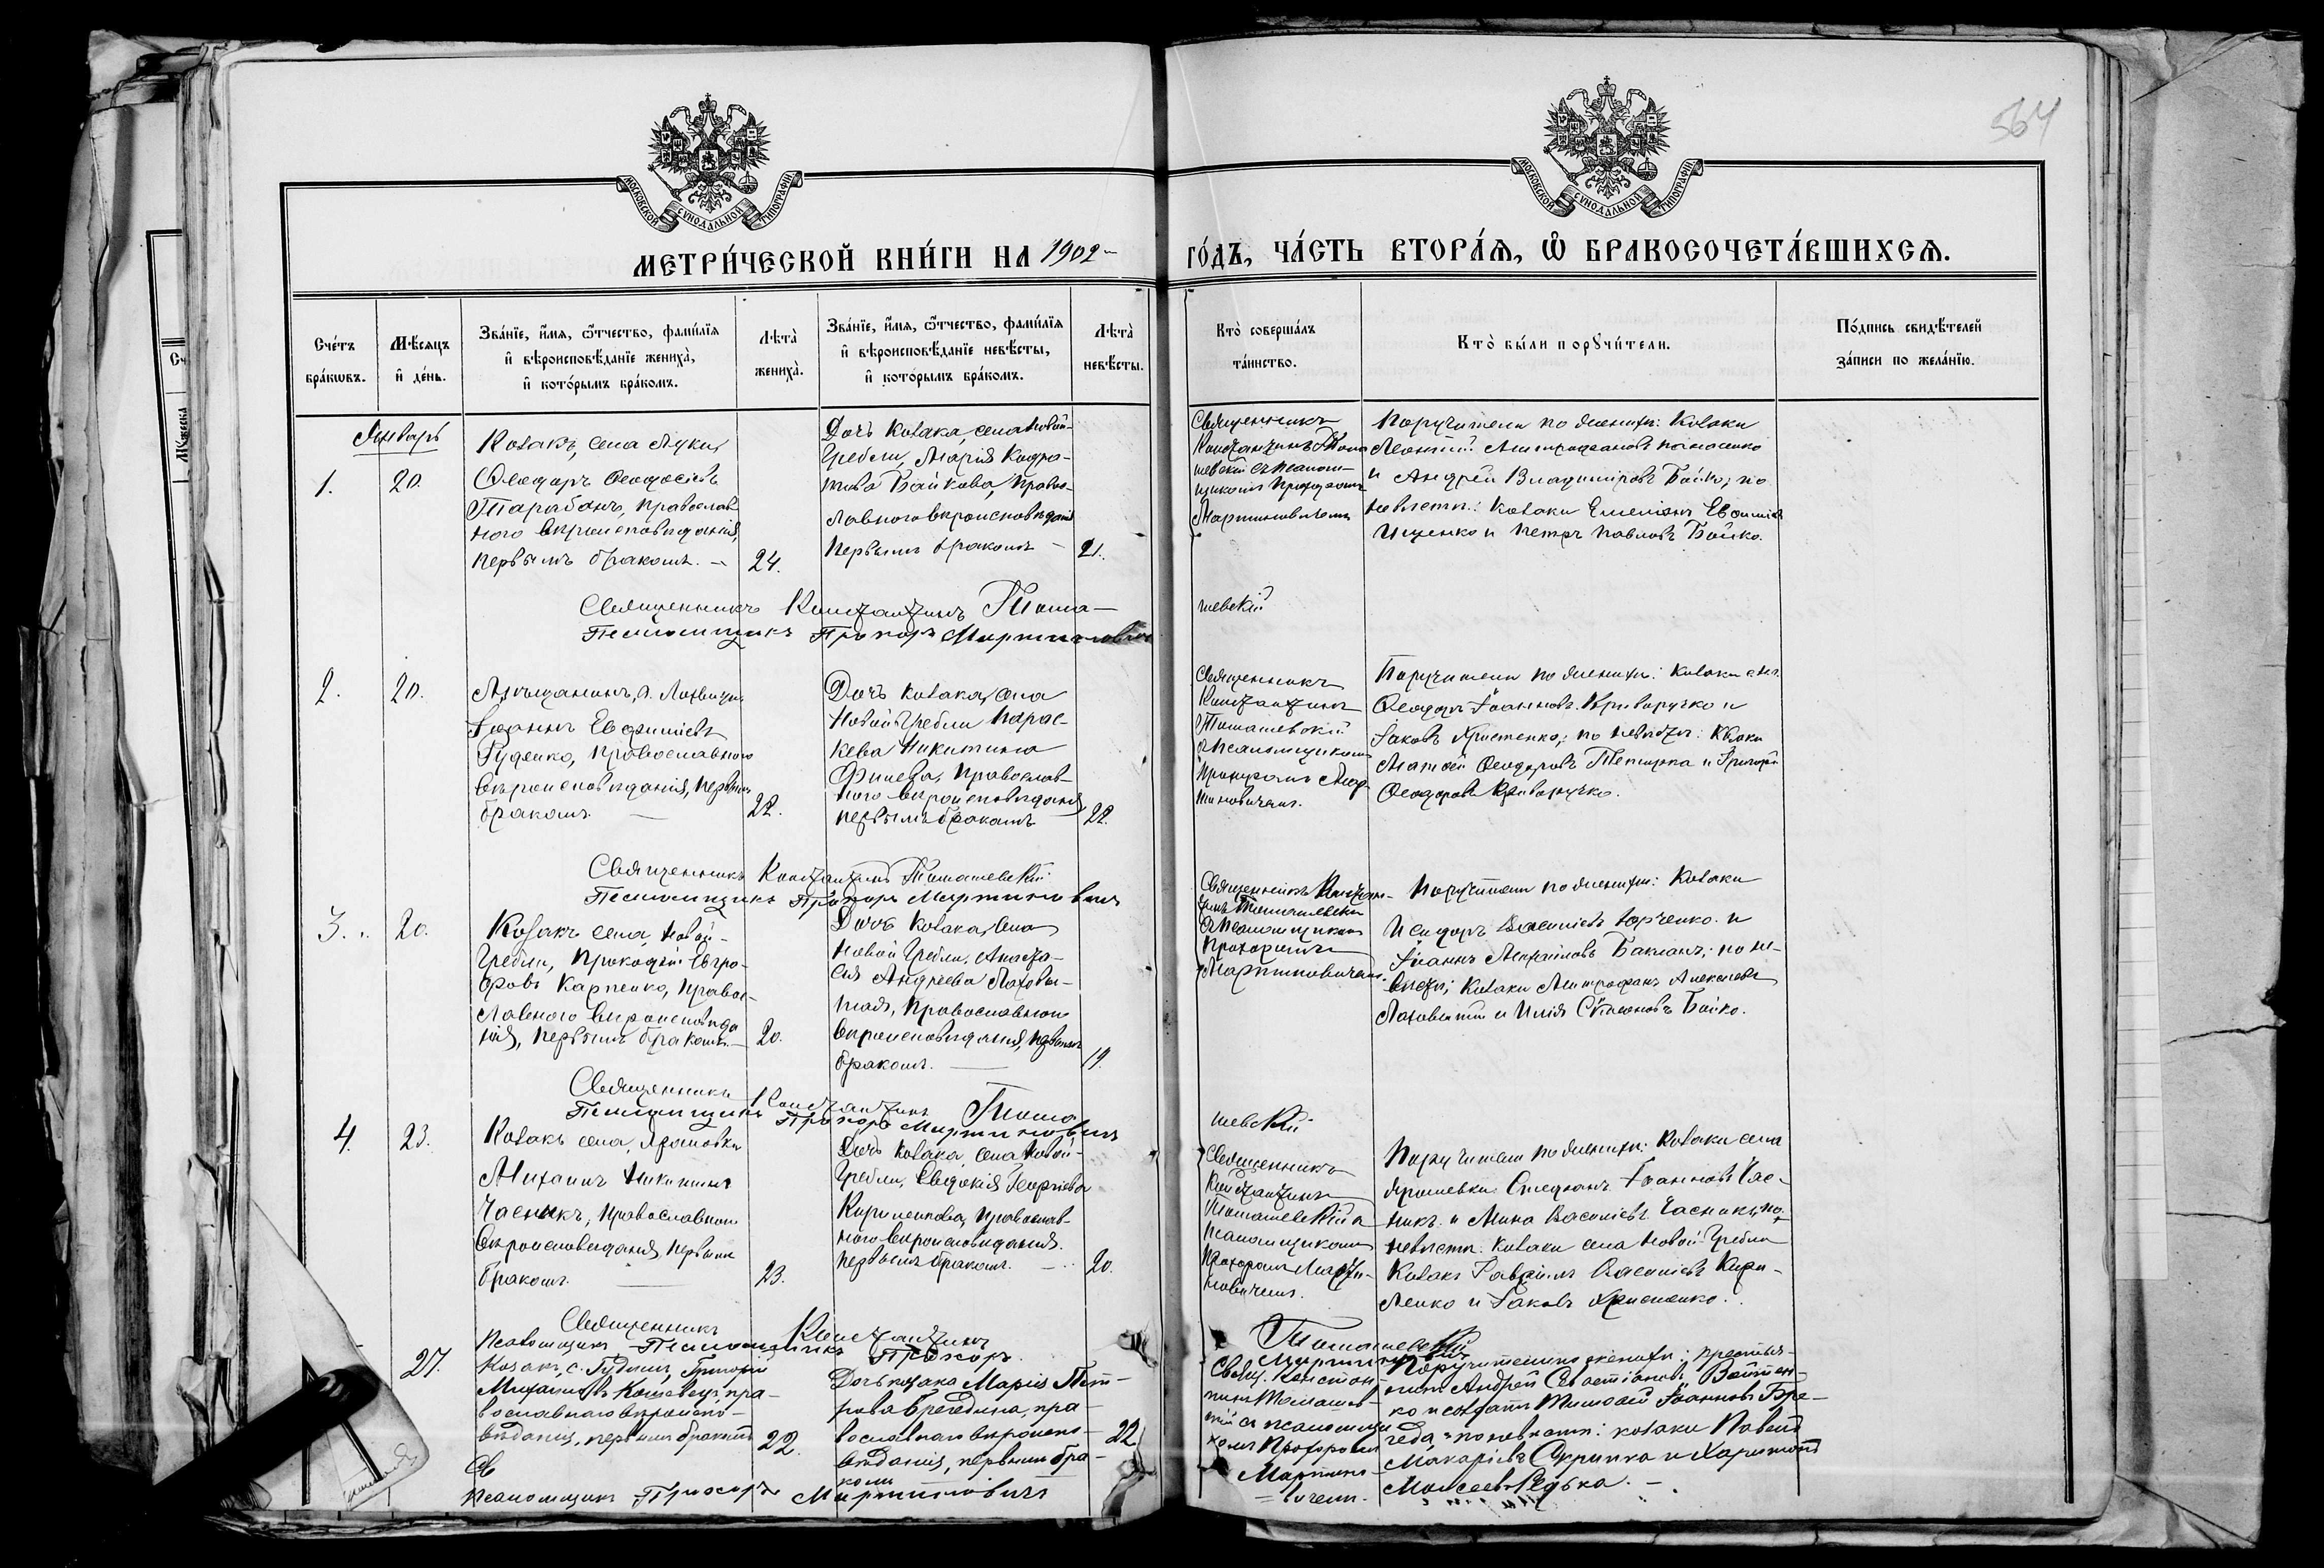 564
МОСКОВСКОЙ СУНОДАЛЬНОЙ ТИПОГРАФІИ
МОСКОВСКОЙ СУНОДАЛЬНОЙ ТИПОГРАФІИ
МЕТРИ́ЧЕСКОЙ КНИ́ГИ НА 1902 ГО́ДЪ, ЧА́СТЬ ВТОРА́Я, Ѡ БРАКОСОЧЕТА́ВШИХСЯ.
Сче́тъ бра́кωвъ.
Мѣ́сяцъ и҆ де́нь.
Зва́нїе, и҆́мя, ѻ҆́тчество, фами́лїя
и҆ вѣроисповѣ́данїе жениха̀,
и҆ кото́рымъ бра́комъ.
Лѣта̀ жениха̀.
Зва́нїе, и҆́мя, ѻ҆́тчество, фами́лїя
и҆ вѣроисповѣ́данїе невѣ́сты,
и҆ кото́рымъ бра́комъ.
Лѣта̀ невѣ́сты.
Кто̀ соверша́лъ
та́инство.
Кто̀ бы́ли порꙋчи́тели.
По́дпись свидѣ́телей
за́писи по жела́нїю.
Январь
1.
20.
Козакъ, села Луки,
Ѳеодоръ Ѳеодосіевъ
Тарабанъ, православ
ного вѣроисповѣданія,
первымъ бракомъ. —
24.
Дочь козака, села Новой-
Гребли, Марія Кодра-
това Байкова, право-
славного вѣроисповѣданія
первымъ бракомъ —
21.
Священникъ
Константинъ Тома
шевскій съ псалом-
щикомъ Прохоромъ
Мартиновичемъ
Поручители по женихѣ: козаки
Леонтій Митрофановъ Панасенко
и Андрей Владиміровъ Бойко; по
невѣстѣ: козаки Емеліанъ
Ищенко и Петръ Павловъ Бойко.
Священникъ Константинъ Тома-
шевскій
Псаломщикъ Прохоръ Мартинович
2.
20.
Мѣщанинъ, г. Лохвицы
Іоаннъ Евфиміевъ
Руденко, православного
вѣроисповѣданія, первымъ
бракомъ. —
22.
Дочь козака, села
Новой Гребли Парас-
кева Никитина
православ-
ного вѣроисповѣданія,
первымъ бракомъ
22.
Священникъ
Константинъ
Томашевскій
съ псаломщикомъ
Прохоромъ Мар-
тиновичемъ.
Поручители по женихѣ: козаки
Ѳеодоръ Іоанновъ Криворучко и
Іаковъ Христенко; по невѣстѣ: козаки
Матѳей Ѳеодоровъ и Григорій
Ѳеодоровъ Криворучко.
Священникъ Константинъ Томашевскій
Псаломщикъ Прохоръ Мартинович
3.
20.
Козакъ села, Новой-
Гребли, Прокофій Евгра-
фовъ Карпенко, право-
славного вѣроисповѣда
нія, первымъ бракомъ. —
20.
Дочь козака, села
Новой Гребли, Анаста-
сія Андреева Лаховы-
тая, православного
вѣроисповѣданія, первымъ
бракомъ. —
19.
Священникъ Констан-
тинъ Томашевскій
съ псаломщикомъ
Прохоромъ
Мартиновичемъ.
Поручители по женихѣ: козаки
Исидоръ Васильевъ Юрченко и
Іоаннъ Михайловъ Бакланъ; по не-
вѣстѣ; козаки Митрофанъ Алексіевъ
и Илія Сѵмеоновъ Бойко.
Священникъ Константинъ Тома
шевскій
Псаломщикъ Прохоръ Мартинович
4.
23.
Козакъ села, Ярошовки
Михаилъ Никитинъ
Часныкъ, православного
вѣроисповѣданія, первымъ
бракомъ. —
23.
Дочь козака, села Новой-
Гребли, Евдокія Георгіева
Кириленкова, православ-
ного вѣроисповѣданія.
первымъ бракомъ. —
20.
Священникъ
Константинъ
Томашевскій съ
псаломщикомъ
Прохоромъ Марти-
новичемъ.
Поручители по женихѣ: козаки села
Ярошевки: Стефанъ Іоанновъ Час-
никъ и Мина Васильевъ Часникъ; по
невѣстѣ: козаки села Новой-Гребли
козакъ Гавріилъ Васильевъ Кири-
ленко и Іаковъ Христенко.
Священникъ Константинъ Томашевскій
Псаломщикъ Прохоръ Мартинович
27.
Козакъ, с. Гудимъ, Григорій
Михаиловъ Кошевецъ, пра-
вославнаго вѣроиспо-
вѣданія, первымъ бракомъ
22.
Дочь козака Марія Пет-
рова Бреедина, пра-
вославнаго вѣроиспо-
вѣданія, первымъ бра-
комъ
22
Свящ. Констан-
тинъ Томашев-
скій съ псаломщи
комъ Прохоромъ
Мартино-
вичемъ.
Поручители по женихѣ: крестья-
нинъ Андрей Севастіановъ Войтен-
ко и солдатъ Тимоѳей Іоанновъ Бре-
геда, по невѣстѣ: козаки Павелъ
Макаріевъ Скрипка и Харитонъ
Моисеевъ Редька. —
Псаломщикъ Прохоръ Мартиновичъ